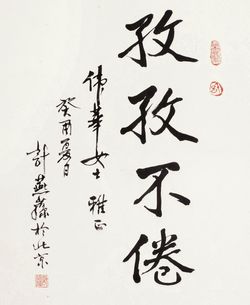 孜孜不倦
伟華女士 雅正
癸酉夏日
計燕蓀於北京